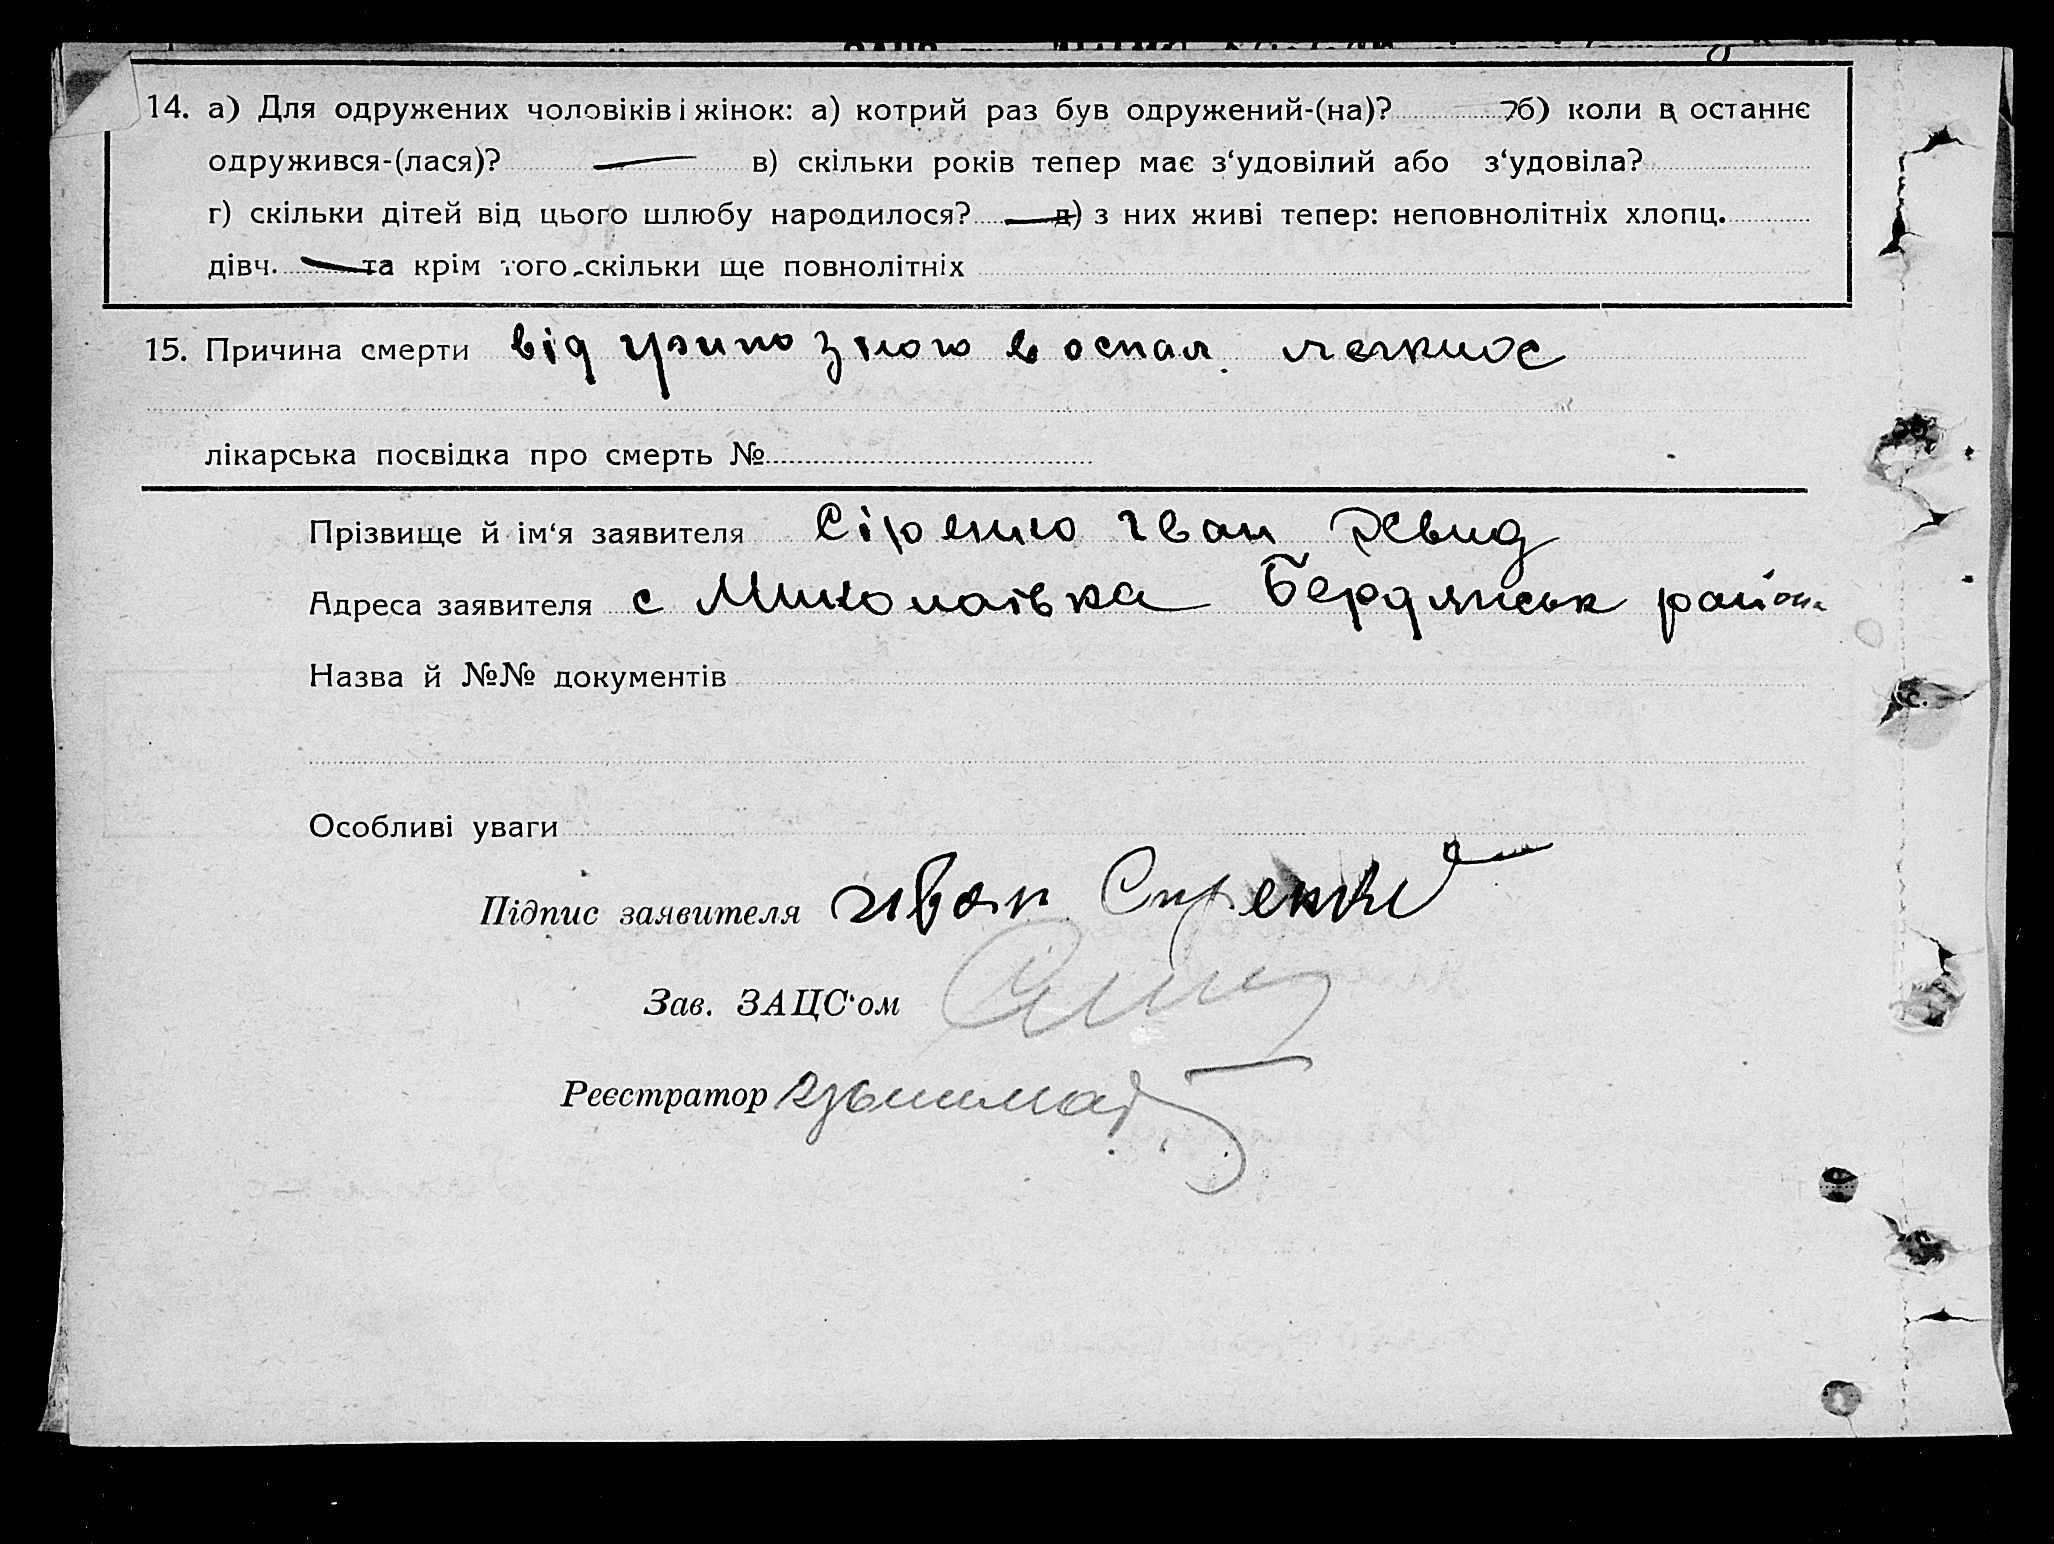 14. а) Для одружених чоловіків і жінок: а) котрий раз був одружений-(на)? б) коли в останнє
одружився-(лася)? — в) скільки років тепер має з‘удовілий або з‘удовіла?
г) скільки дітей від цього шлюбу народилося? — д) з них живі тепер: неповнолітніх хлопц.
дівч. — та крім того, скільки ще повнолітніх
15. Причина смерти від грипозного воспал. легкиг
лікарська посвідка про смерть №
Прізвище й ім‘я заявителя Сіренко Іван
Адреса заявителя с Миколаівка Бердянськ района
Назва й №№ документів
Особливі уваги
Підпис заявителя Иван Сиренко
Зав. ЗАЦС‘ом
Реєстратор